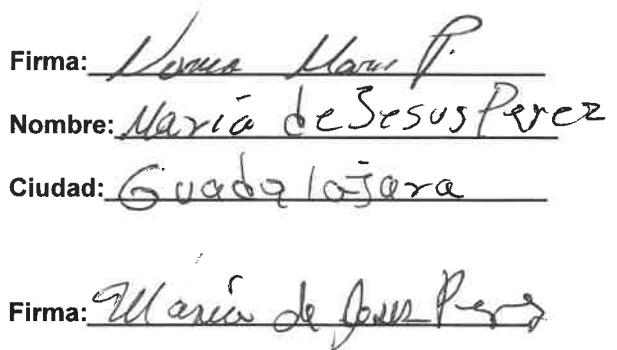 Firma: Norma Mari P.
Nombre: María de Jesus Perez
Ciudad: Guadalajara
Firma: Maria de Jesus Perez